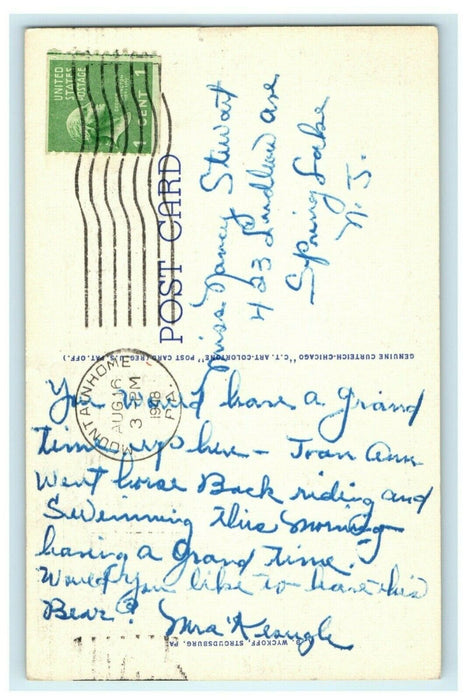 UNITED
STATES
POSTAGE
1 CENT 1
MOUNTAINHOME
AUG 16
3 PM
1948
PA.
POST CARD
GENUINE CURTEICH-CHICAGO "C.T. ART-COLORTONE" POST CARD (REG. U.S. PAT. OFF.)
Miss Nancy Stewart
423 Ludlow ave
Spring Lake
N. J.
You would have a grand
time up here - Joan Ann
went horse Back riding and
Swimming this morning
having a grand time.
Would you like to have this
Bear?
Mrs Keough
WYCKOFF, STROUDSBURG, PA.